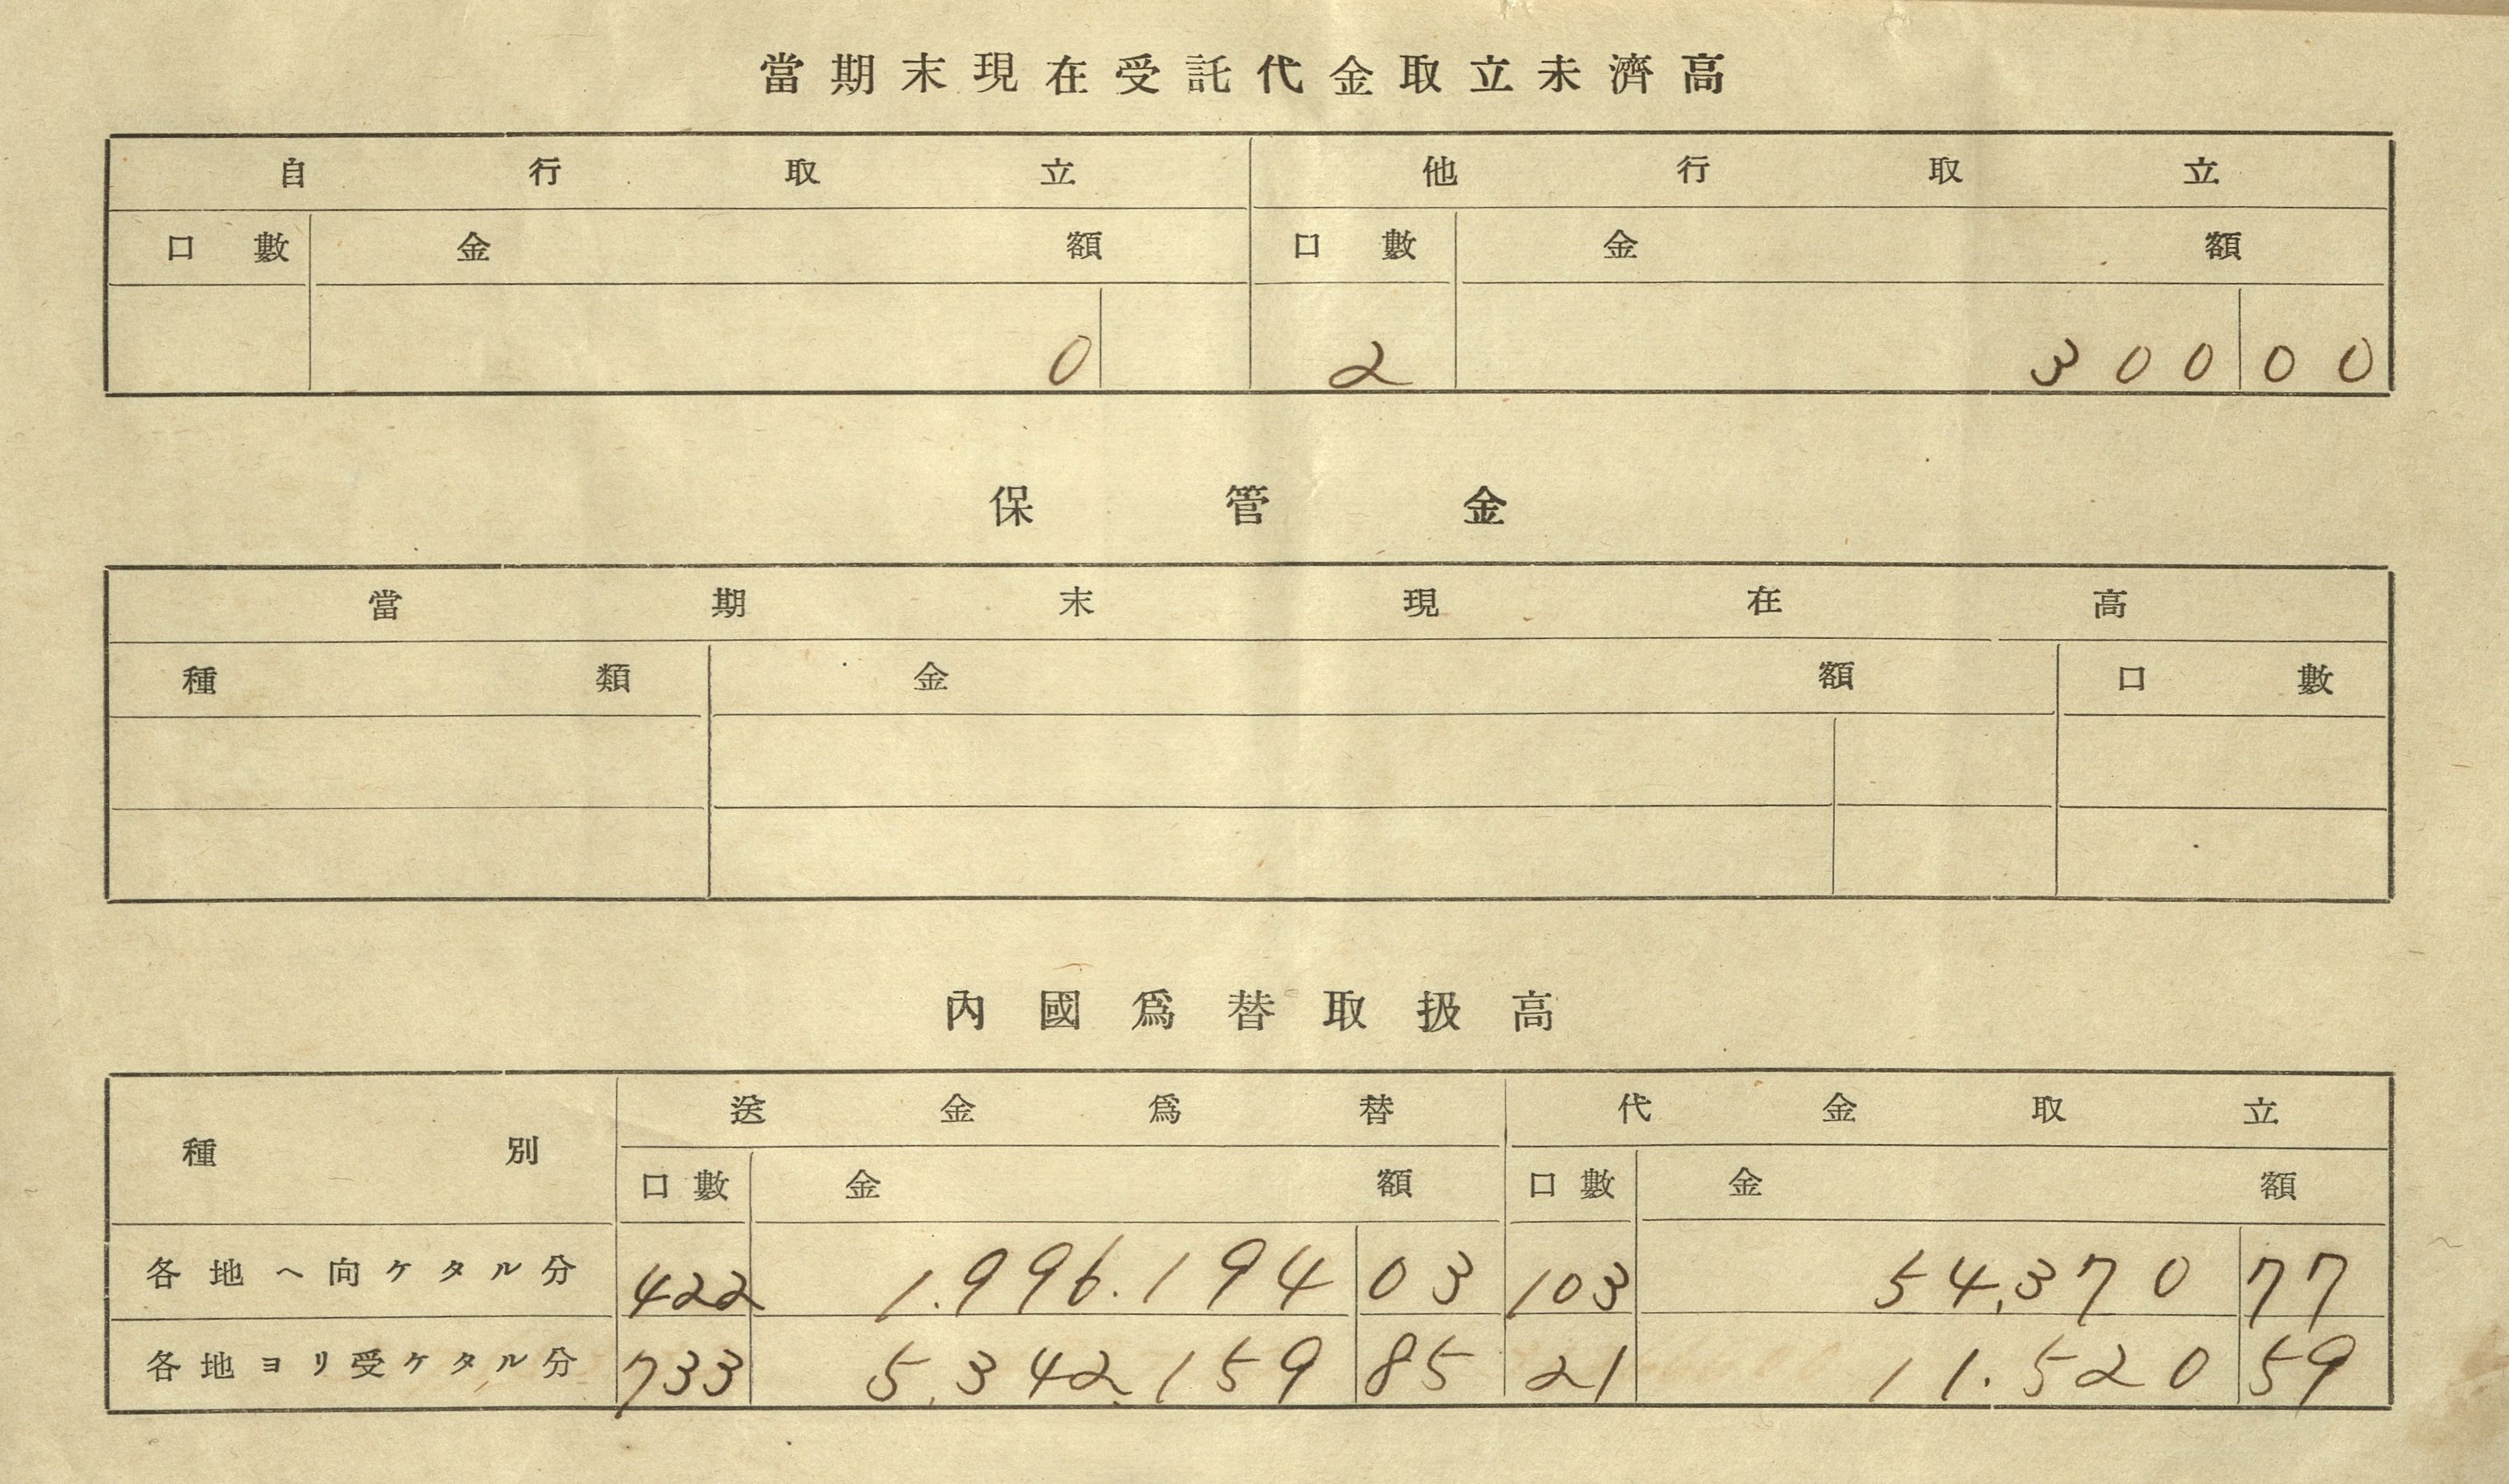 當期末現在受託代金取立未濟高
自行取立 他行取立
口數 金額 口數 金額
0 2 300 00
保管金
當期末現在高
種類 金額 口數
內國爲替取扱高
種別 送金爲替 代金取立
口數 金額 口數 金額
各地ヘ向ケタル分 422 1.996.194 03 103 54,370 77
各地ヨリ受ケタル分 733 5,342,159 85 21 11.520 59